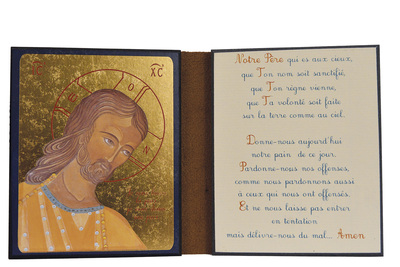 X͞C
O
N
Notre Père qui es aux cieux,
que Ton nom soit sanctifié,
que Ton règne vienne,
que Ta volonté soit faite
sur la terre comme au ciel.
Donne-nous aujourd'hui
notre pain de ce jour.
Pardonne-nous nos offenses,
comme nous pardonnons aussi
à ceux qui nous ont offensés.
Et ne nous laisse pas entrer
en tentation
mais délivre-nous du mal... Amen